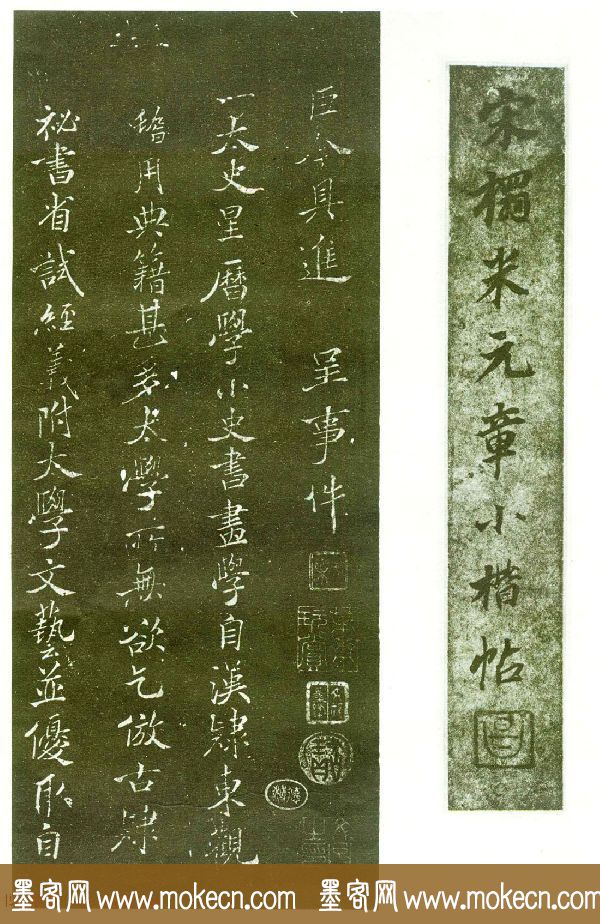 宋榻米元章小楷帖
臣今具進　呈事件
一太史星曆學小史書畫學自漢隸東觀
稽用典籍甚多太學所無欲乞倣古隸
祕書省試經義附太學文藝並優取自
墨客网 www.mokecn.com 墨客网 www.mokecn.com